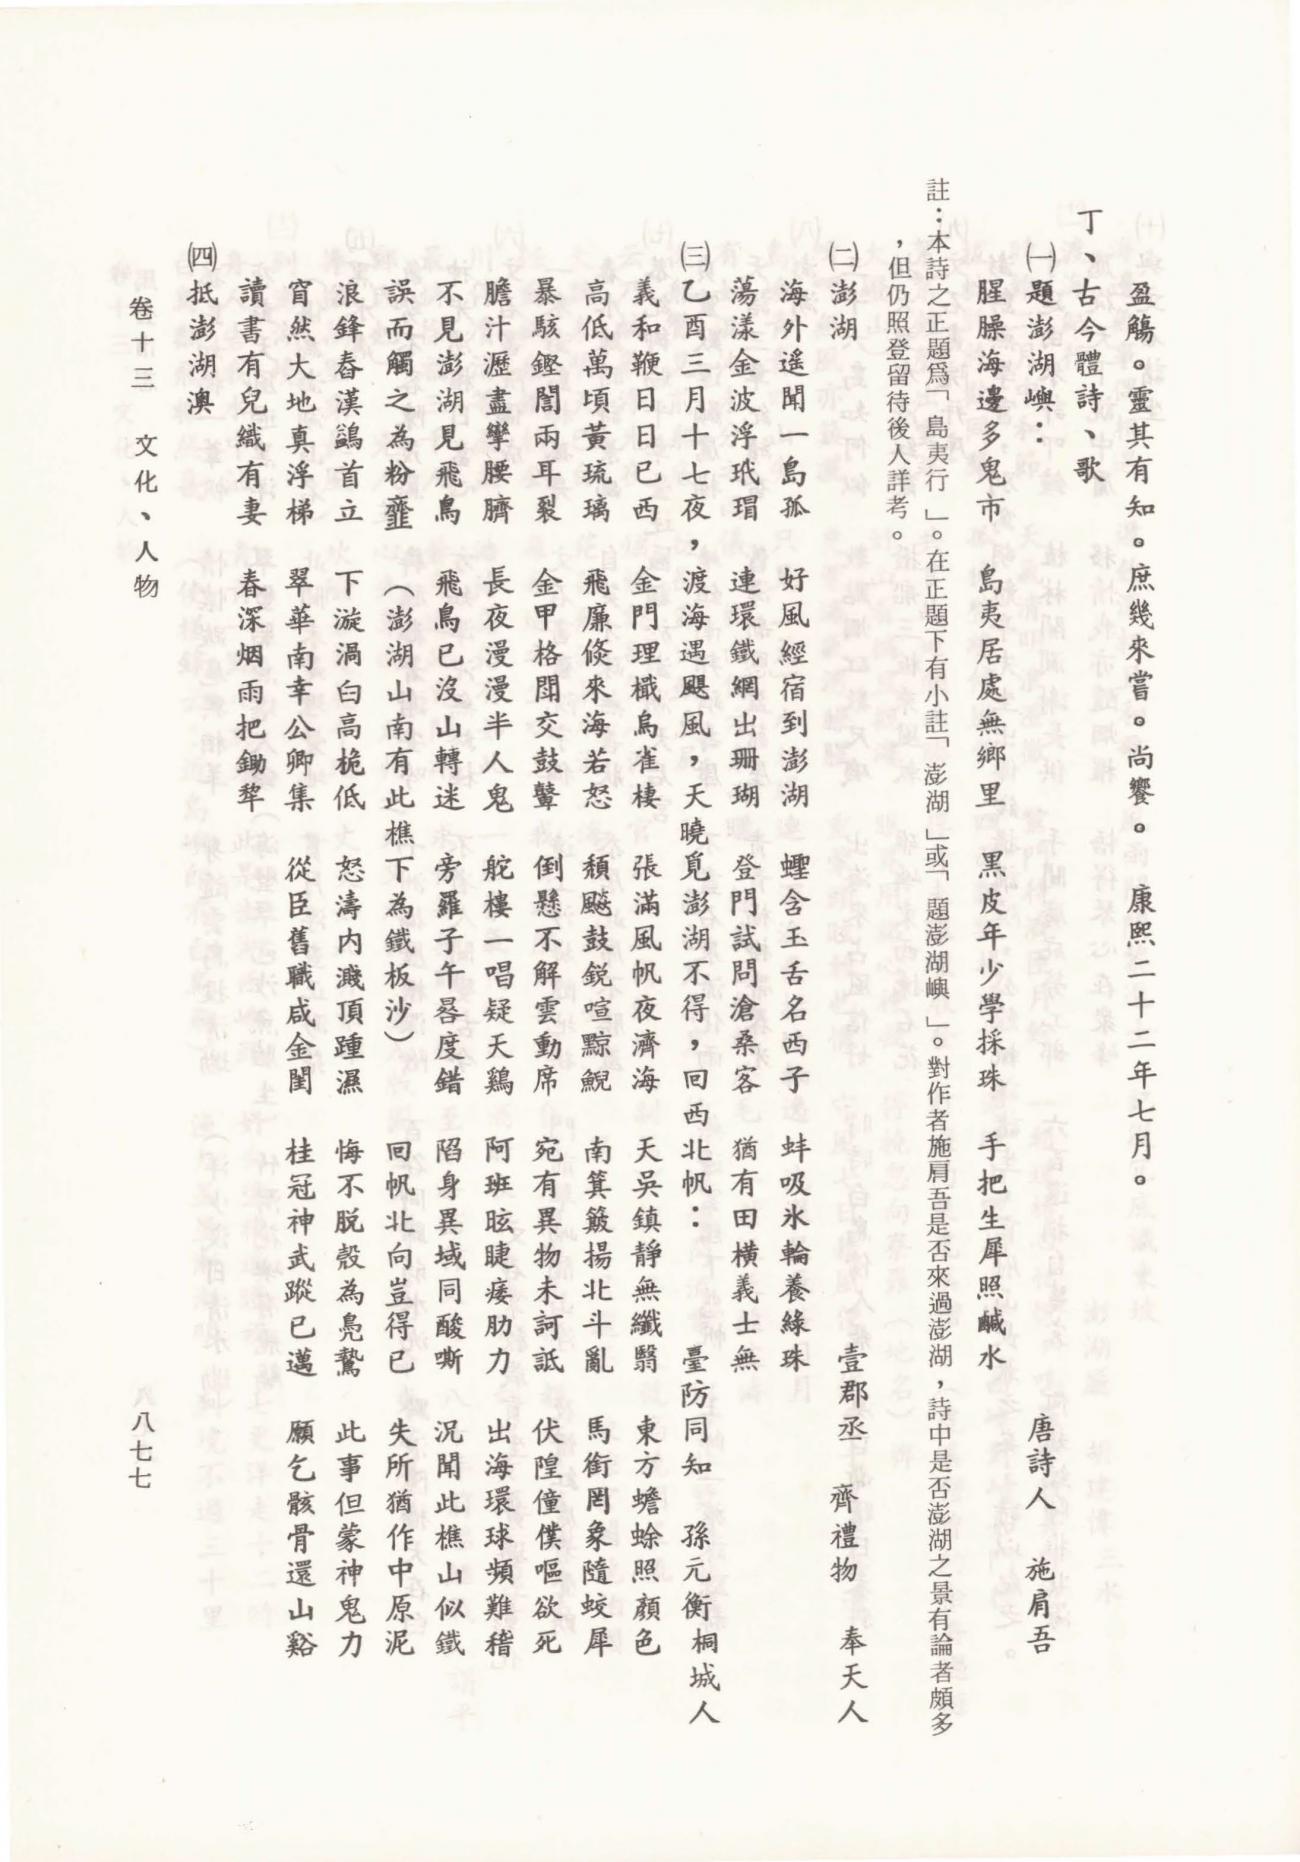 盈觴。靈其有知。庶幾來嘗。尚饗。　康熙二十二年七月。
丁、古今體詩、歌
㈠題澎湖嶼：　唐詩人　施肩吾
腥臊海邊多鬼市　島夷居處無鄉里　黑皮年少學採珠　手把生犀照鹹水
註：本詩之正題爲「島夷行」。在正題下有小註「澎湖」或「題澎湖嶼」。對作者施肩吾是否來過澎湖，詩中是否澎湖之景有論者頗多
，但仍照登留待後人詳考。
㈡澎湖　壹郡丞　齊禮物　奉天人
海外遥聞一島孤　好風經宿到澎湖　蟶含玉舌名西子　蚌吸氷輪養綠珠
蕩漾金波浮玳瑁　連環鐵網出珊瑚　登門試問滄桑客　猶有田橫義士無
㈢乙酉三月十七夜，渡海遇颶風，天曉覓澎湖不得，回西北帆：　臺防同知　孫元衡桐城人
義和鞭日日已西　金門理檝烏雀棲　張滿風帆夜濟海　天吳鎮靜無纖翳　東方蟾蜍照顏色
高低萬頃黃琉璃　飛廉倐來海若怒　頹飈鼓銳喧黥鯢　南箕簸揚北斗亂　馬銜罔象隨蛟犀
暴駭鏗訇兩耳裂　金甲格鬪交鼓鼙　倒懸不解雲動席　宛有異物未訶詆　伏隍僮僕嘔欲死
膽汁瀝盡攣腰臍　長夜漫漫半人鬼　舵樓一唱疑天鷄　阿班眩睫痿肋力　出海環球頻難稽
不見澎湖見飛鳥　飛鳥已沒山轉迷　旁羅子午晷度錯　陷身異域同酸嘶　況聞此樵山似鐵
誤而觸之為粉虀　（澎湖山南有此樵下為鐵板沙）　回帆北向豈得已　失所猶作中原泥
浪鋒舂漢鷁首立　下漩渦臼高桅低　怒濤內濺頂踵濕　悔不脫殼為鳧鷖　此事但蒙神鬼力
窅然大地真浮梯　翠華南幸公卿集　從臣舊職咸金閨　桂冠神武蹤已邁　願乞骸骨還山谿
讀書有兒織有妻　春深烟雨把鋤犂
㈣抵澎湖澳
卷十三　文化、人物
八七七